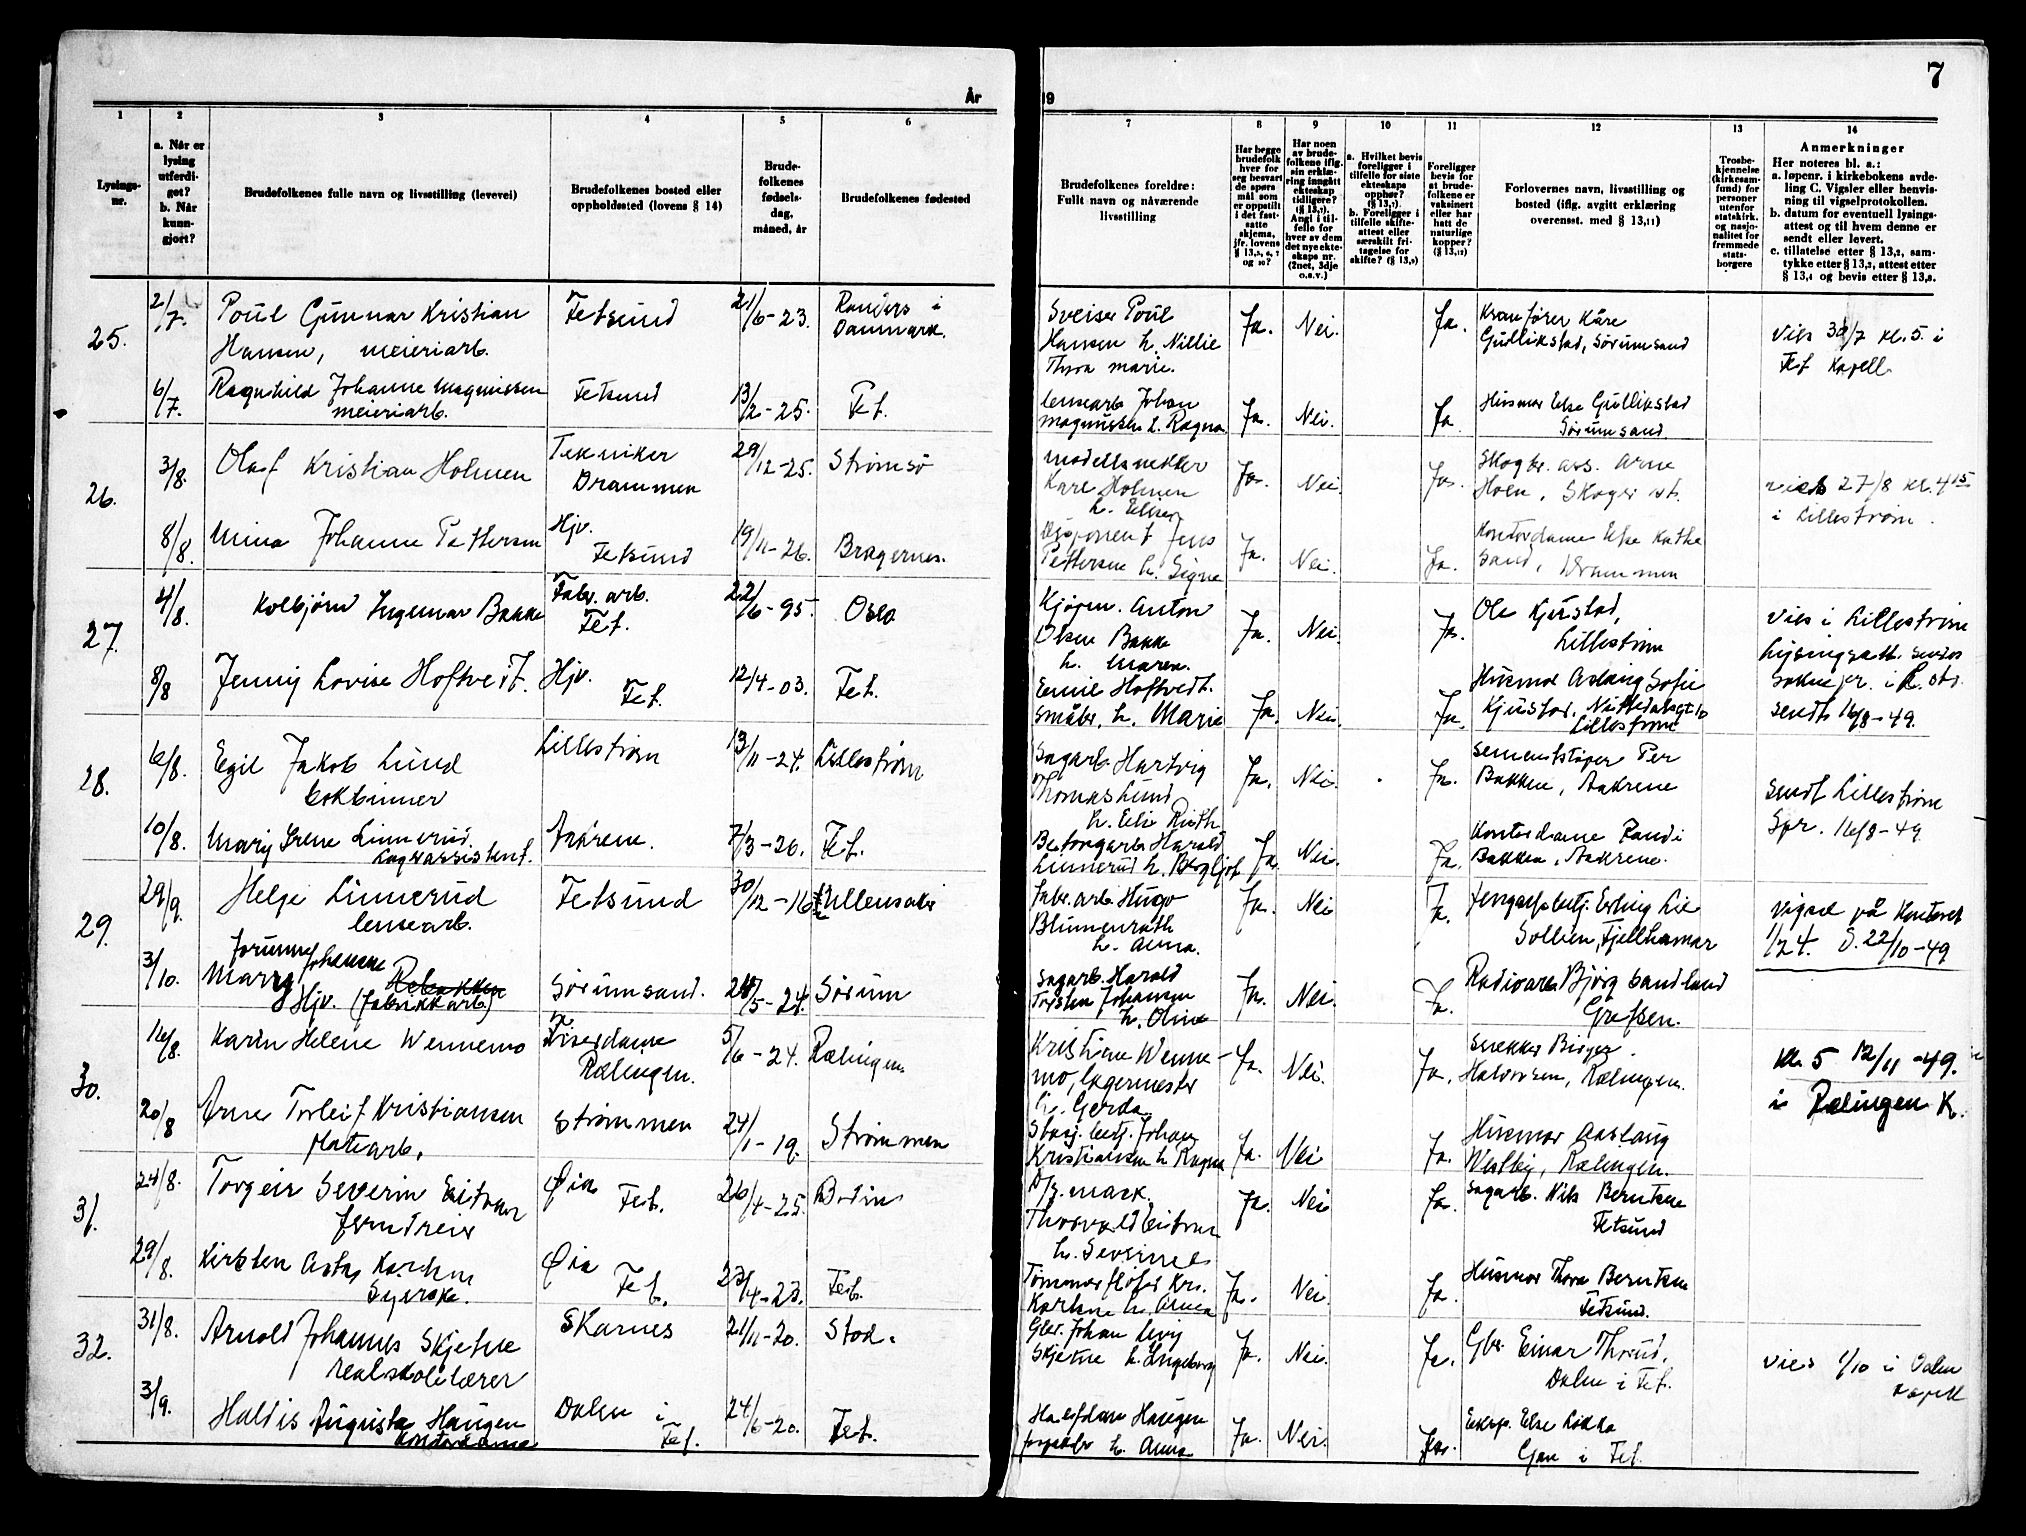 7
År
19
1
2
3
4
5
6
7
8
9
10
11
12
13
14
Lysings-
nr.
a. Når er
lysing
utferdi-
get?
b. Når
kunn-
gjort?
Brudefolkenes fulle navn og livsstilling (levevei)
Brudefolkenes bosted eller
oppholdssted (lovens § 14)
Brude-
folkenes
fødsels-
dag,
måned, år
Brudefolkenes fødested
Brudefolkenes foreldre:
Fullt navn og nåværende
livsstilling
Har begge
brudefolk
hver for
seg besvart
de spørs-
mål som
er oppstilt
i det fast-
satte
skjema,
jfr. lovens
og 10?
Har noen
av brude-
folkene iflg.
sin erklæ-
ring inngått
ekteskap
tidligere?
Angi i til-
felle for
hver av dem
det nye ekte-
skaps nr.
(2net, 3dje
o.s.v.)
a. Hvilket bevis
foreligger i
tilfelle for siste
ekteskaps
opphør?
b. Foreligger i
tilfelle skifte-
attest eller
særskilt fri-
tagelse for
skifte?
Foreligger
bevis for
at brude-
folkene er
vaksinert
eller har
hatt de
naturlige
kopper?
Forlovernes navn, livsstilling og
bosted (iflg. avgitt erklæring
overensst. med § 13,11)
Trosbe-
kjennelse
(kirkesam-
fund) for
personer
utenfor
statskirk.
og nasjo-
nalitet for
fremmede
stats-
borgere
Anmerkninger
Her noteres bl. a.:
a. løpenr. i kirkebokens avde-
ling C. Vigsler eller henvis-
ning til vigselprotokollen.
b. datum for eventuell lysings-
attest og til hvem denne er
sendt eller levert.
c. tillatelse etter § 13,2, sam-
tykke etter § 13,3, attest etter
§ 13,4 og bevis etter § 13,8.
25.
2/7.
Poul Gunnar Kristian
Hansen, meieriarb.
Fetsund
21/6-23.
Randers i
Danmark.
Sveiser Poul
Hansen h. Nillie
Thora Marie.
Ja. Nei. Ja.
Kranfører Kåre
Gullikstad, Sørumsand
Vies 30/7 kl. 5. i
Fet Kapell
6/7.
Ragnhild Johanne Magnussen
meieriarb.
Fetsund
13/12-25.
Fet.
lensearb Johan
Magnussen h. Ragna
Ja. Nei. Ja
Husmor Else Gullikstad
Sørumsand.
26.
3/8.
Olaf Kristian Holmen
Tekniker
Drammen
29/12-25.
Strømsø
modellsnekker
Kare Holmen
h. Ellen
Ja. Nei. Ja.
Skogbr. ass. Arne
Holm, Skoger st.
vies 27/8 kl. 4 15
i Lillestrøm.
8/8.
Mina Johanne Pettersen
Hjv.
Fetsund
19/11-26.
Bragernes.
Disponent Jens
Pettersen h. Signe
Ja. Nei. Ja.
Kontordame Else Kathe
Sand, Drammen
27.
4/8.
Kolbjørn Ingemar Bakke
Fabr. arb.
Fet.
22/6-95.
Oslo
Kjøpm. Anton
Olsen Bakke
h. Maren.
Ja. Nei. Ja.
Ole Kjustad,
Lillestrøm
Vies i Lillestrøm
Lysingsatt. sendes
Sokne pr. i L. str.
sendt 16/8-49.
8/8
Jenny Lovise Hoftvedt.
Hjv.
Fet.
12/4-03.
Fet.
Emil Hoftvedt.
småbr. h. Marie
Ja. Nei. Ja.
Husmor Aslaug Sofie
Kjustad, Nittedalsgt 10
Lillestrøm
28.
6/8.
Egil Jakob Lund
bokbinner
Lillestrøm
13/11-24.
Lillestrøm
Sagarb. Hartvig
Thomas Lund
h. Elie Ruth
Ja. Nei. Ja.
sementstøper Per
Bakken, Aakrene
Sendt Lillestrøm
Spr. 16/8-49.
10/8.
Mary Irene Linnerud
Lagerassistent.
Aakrene.
7/3-26.
Fet.
Betongarb. Harald
Linnerud h. Bergljot
Ja. Nei. Ja.
Kontordame Randi
Bakken, Aakrene.
29.
29/9.
Helge Linnerud
lensearb.
Fetsund
30/12-16
Ullensaker
Fabr. arb. Hugo
Blumenrath
h. Anna.
Ja. Nei Ja.
Fengselsbetj. Erling Lie
Solbien, Fjellhamar
Vigsel på Kontoret
1/24. D. 22/10-49
3/10.
Jorunn Johanne
Marry
Hjv. (fabrikkarb)
Sørumsand.
5-24.
Sørum
Sagarb. Harald
Torsten Johansen
h. Oline
Ja. Nei. Ja.
Radioarb. Bjørg Sandlund
Grefsen.
30.
16/8.
Karin Helene Wennemo
Frisørdame
Rælingen.
5/6-24.
Rælingen
Kristian Wenne-
mo, lagermester
h. Gerda
Ja. Nei. Ja.
Snekker Birger
Halvorsen, Rælingen.
Kl. 5 12/11-49.
i Rælingen K.
20/8
Arne Torleif Kristiansen
platearb.
Strømmen
24/1-19.
Strømmen
Stasj. betj. Johan
Kristiansen h. Ragna
Ja. Nei Ja.
Husmor Aaslaug
Westby, Rælingen.
31.
24/8.
Torgeir Severin Eidum
jerndreier
Øia
Fet.
26/4-25.
Bodin
mask.
Thorvald Eidum
h. Severine
Ja. Nei Ja.
Sagarb. Nils Berntsen
Fetsund
29/8.
Kirsten Asta Karlsen
Syerske.
Øia
Fet.
23/4-23.
Fet.
Tømmerfløter Kr.
Karlsen h. Anna
Ja. Nei. Ja.
Husmor Thora Berntsen
Fetsund.
32.
31/8.
Arnold Johannes Skjetne
realskolelærer
Skarnes
21/11-20.
Stod.
Gbr. Johan Levij
Skjetne h. Ingeborg
Ja. Nei. Ja.
Gbr. Einar Thorud,
Dalen i Fet.
Vies 1/10 i Dalen
Kapell
3/9.
Haldis Augusta Haugen
Kontordame
Dalen i
Fet.
24/6-20.
Fet.
Halfdan Haugen
h. Anna
Ja. Nei. Ja.
Eksp. Else Løkka
Gan i Fet.